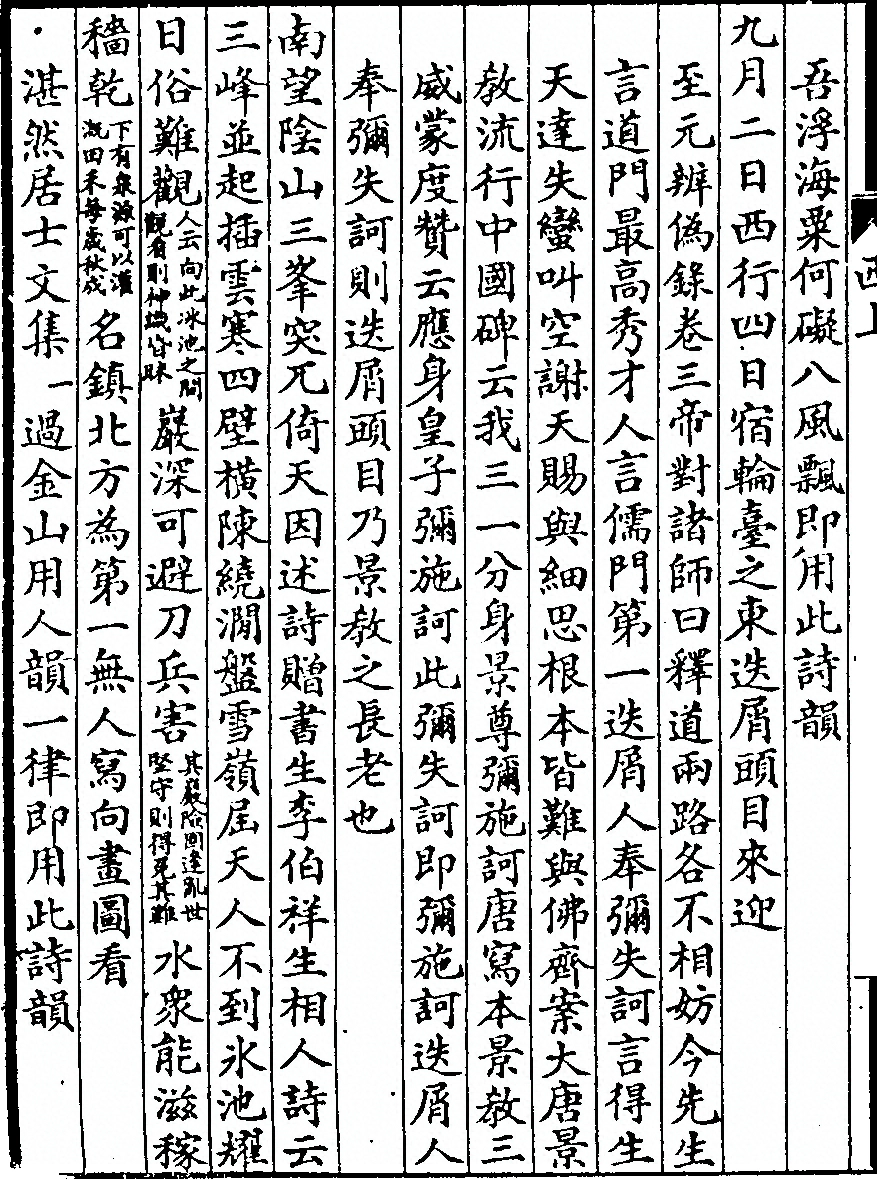 吾浮海粟何礙八風飄即用此詩韻
九月二日西行四日宿輪臺之東迭屑頭目來迎
至元辨偽錄卷三帝對諸師曰釋道兩路各不相妨今先生
言道門最高秀才人言儒門第一迭屑人奉彌失訶言得生
天達失蠻叫空謝天賜與細思根本皆難與佛齊案大唐景
教流行中國碑云我三一分身景尊彌施訶唐寫本景教三
威蒙度贊云應身皇子彌施訶此彌失訶即彌施訶迭屑人
奉彌失訶則迭屑頭目乃景教之長老也
南望陰山三峯突兀倚天因述詩贈書生李伯祥生相人詩云
三峰並起插雲寒四壁橫陳繞澗盤雪嶺屆天人不到氷池耀
日俗難觀人云向此冰池之間觀看則神識皆昧巖深可避刀兵害其巖險固逢亂世堅守則得免其難水衆能滋稼
穡乾下有泉源可以灌溉田禾每歲秋成名鎮北方為第一無人寫向畫圖看
湛然居士文集一過金山用人韻一律即用此詩韻
西上